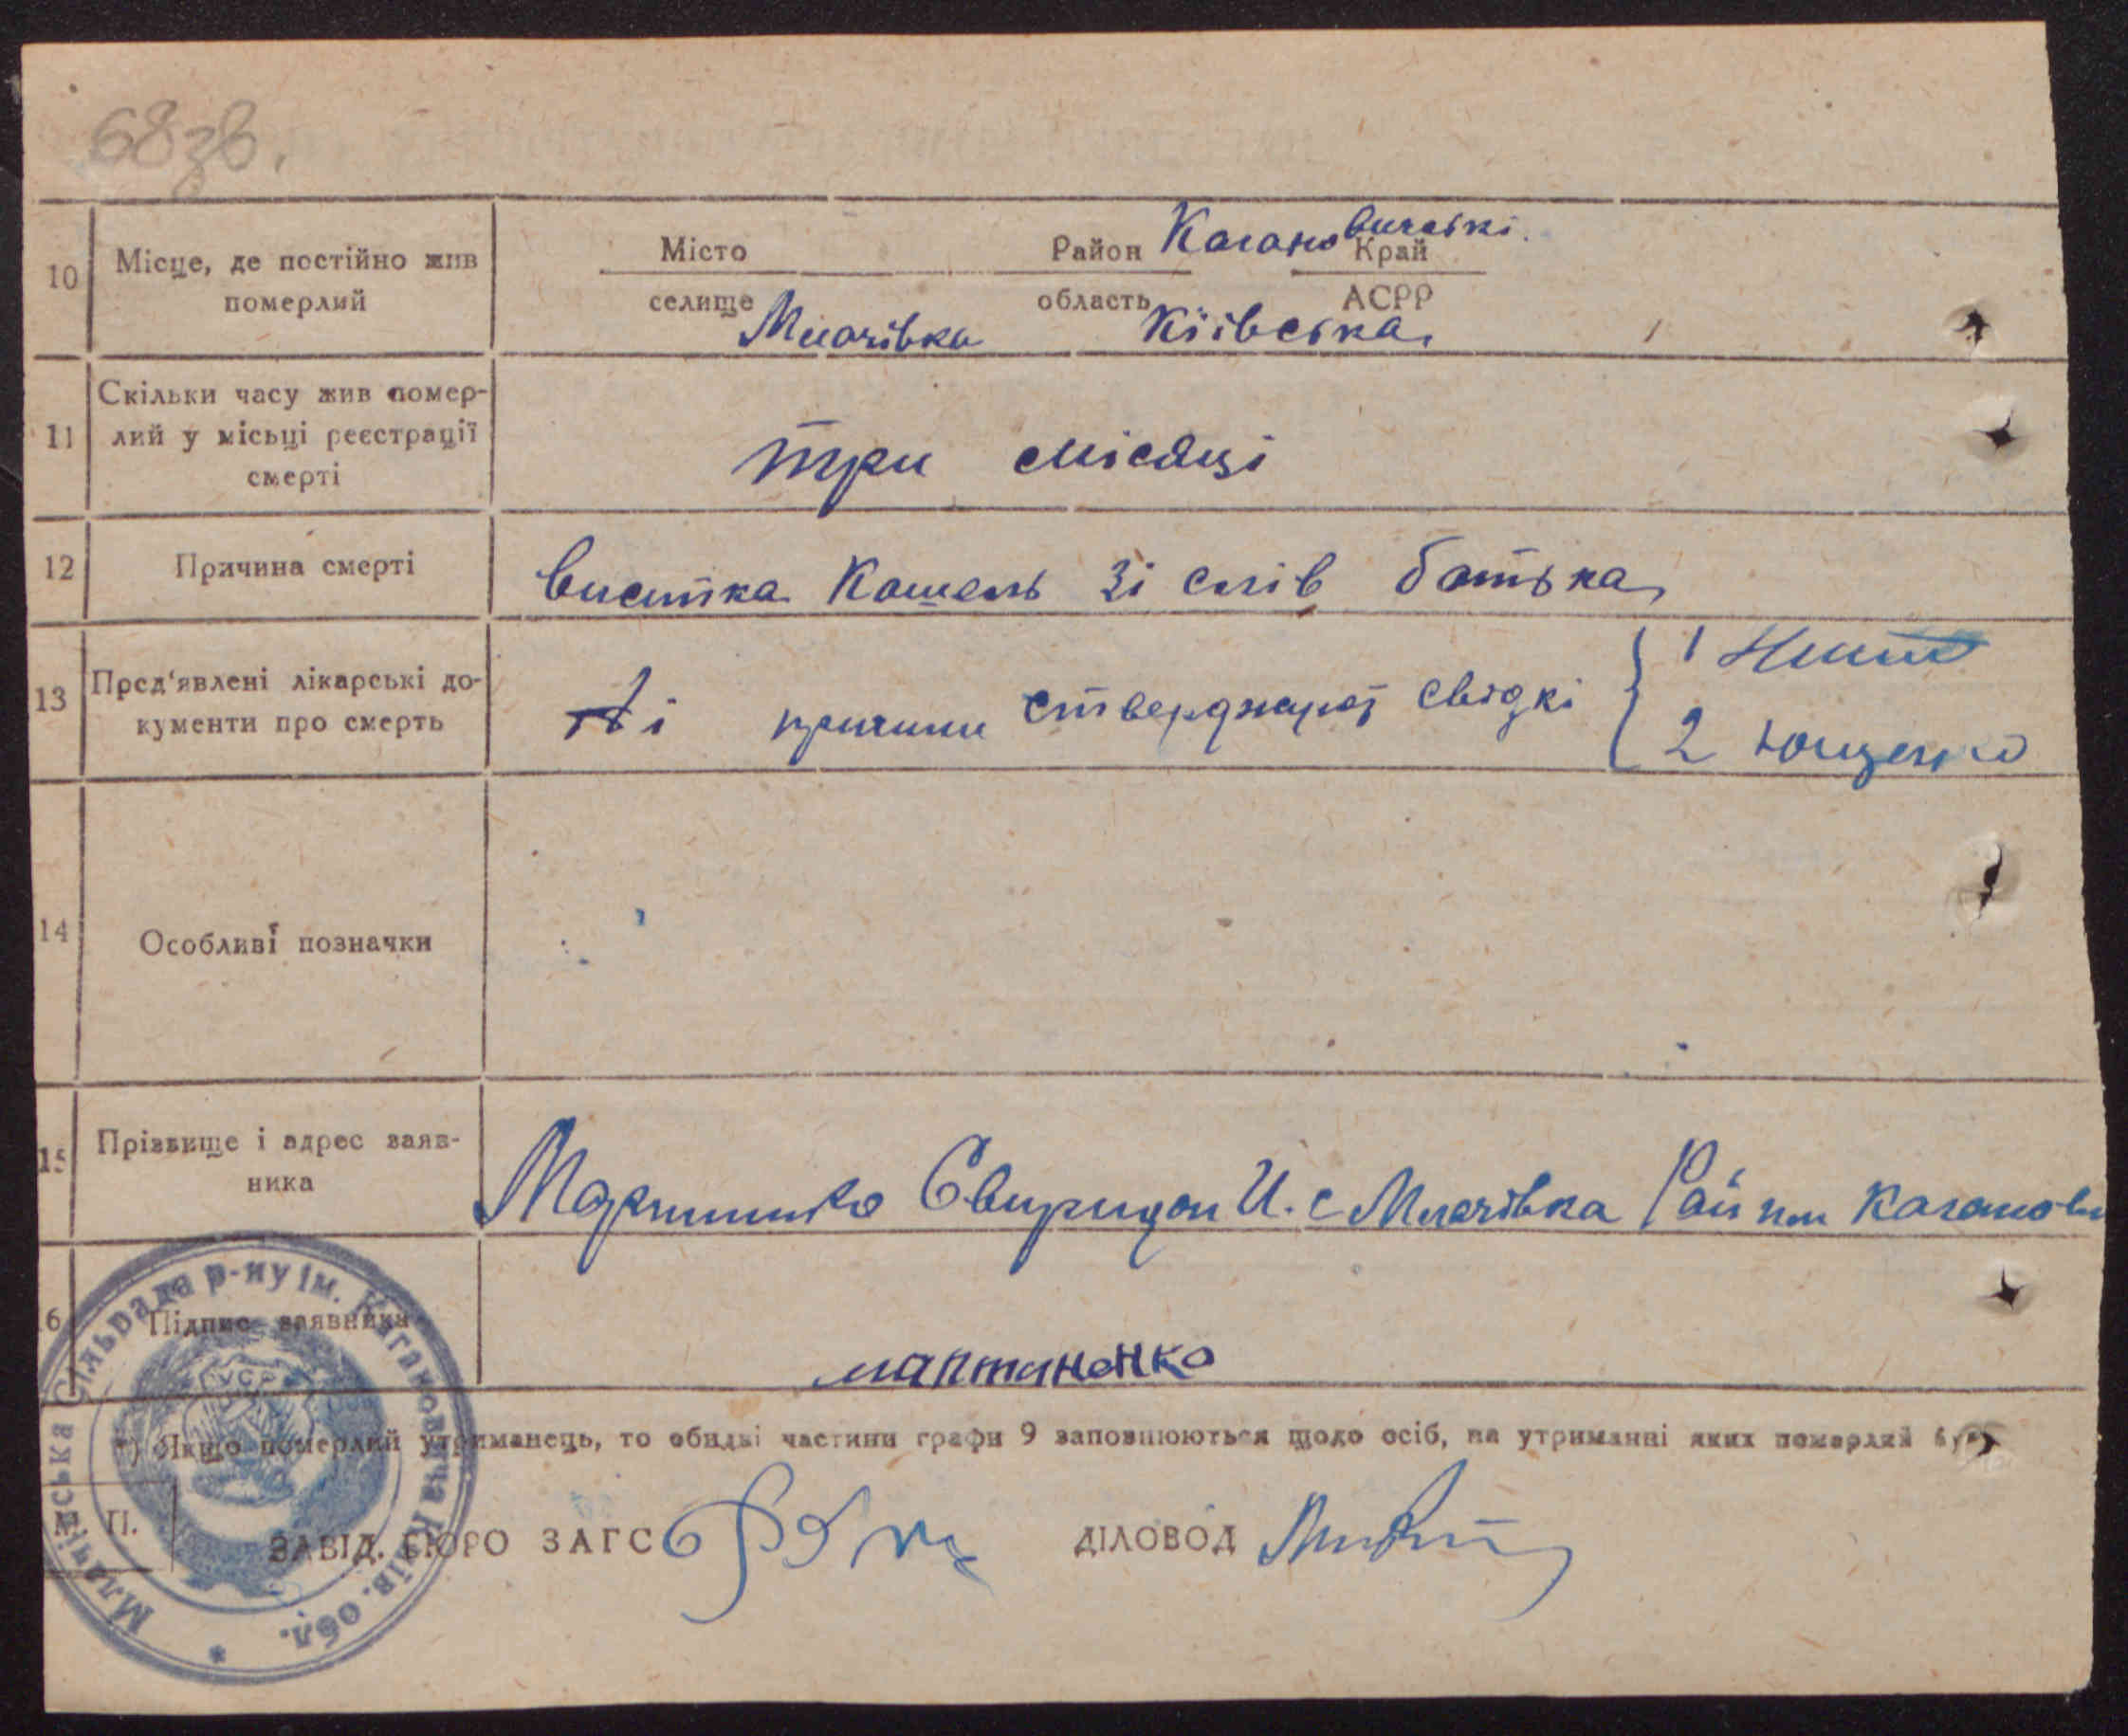 68 зв.
10 Місце, де постійно жив померлий
Місто Район Кагановичські Край
селище Млачівка область Кіівська АСРР
11 Скільки часу жив помер-
лий у місьці реєстрації
смерті
три місяці
12 Причина смерті
висипка Кашель зі слів батька
13 Пред'явлені лікарські до-
кументи про смерть
причини стверджують свідкі
1
2 Ющенко
14 Особливі позначки
15 Прізвище і адрес заяв-
ника
Мартиненко Свиридон И. с Млачівка Район Каганови
16 Підпис заявника
мартиненко
*) Якщо померлий утриманець, то обидві частини графи 9 заповнюються щодо осіб, на утриманні яких померлий був
М. П.
ЗАВІД. БЮРО ЗАГС ДІЛОВОД
Млачівська сільрада р-ну ім. Кагановича Київ. обл.
УСРР